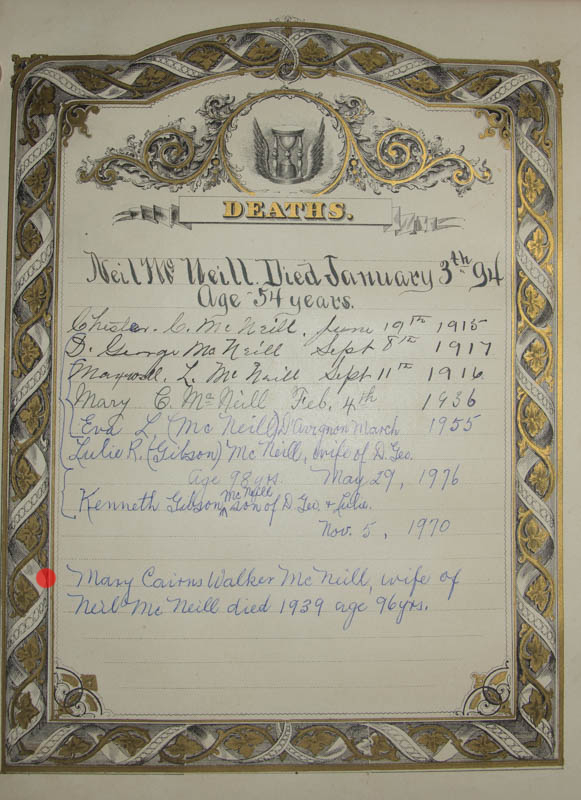 DEATHS.
Neil Mc Neill Died January 3th 94
Age 54 years.
Chester. C. Mc Neill. June 19th 1915
D. George Mc Neill Sept 8th 1917
Maxwell. L. Mc Neill Sept 11th 1916
Mary C. Mc Neill Feb. 4th 1936
Eva L. (Mc Neill) D'Avignon March 1955
Lulie R. (Gibson) McNeill, wife of D. Geo.
Age 98 yrs. May 29, 1976
Kenneth Gibson McNeill son of D. Geo. & Lulie.
Nov. 5, 1970
Mary Cairns Walker McNeill, wife of
Neil Mc Neill died 1939 age 96 yrs.